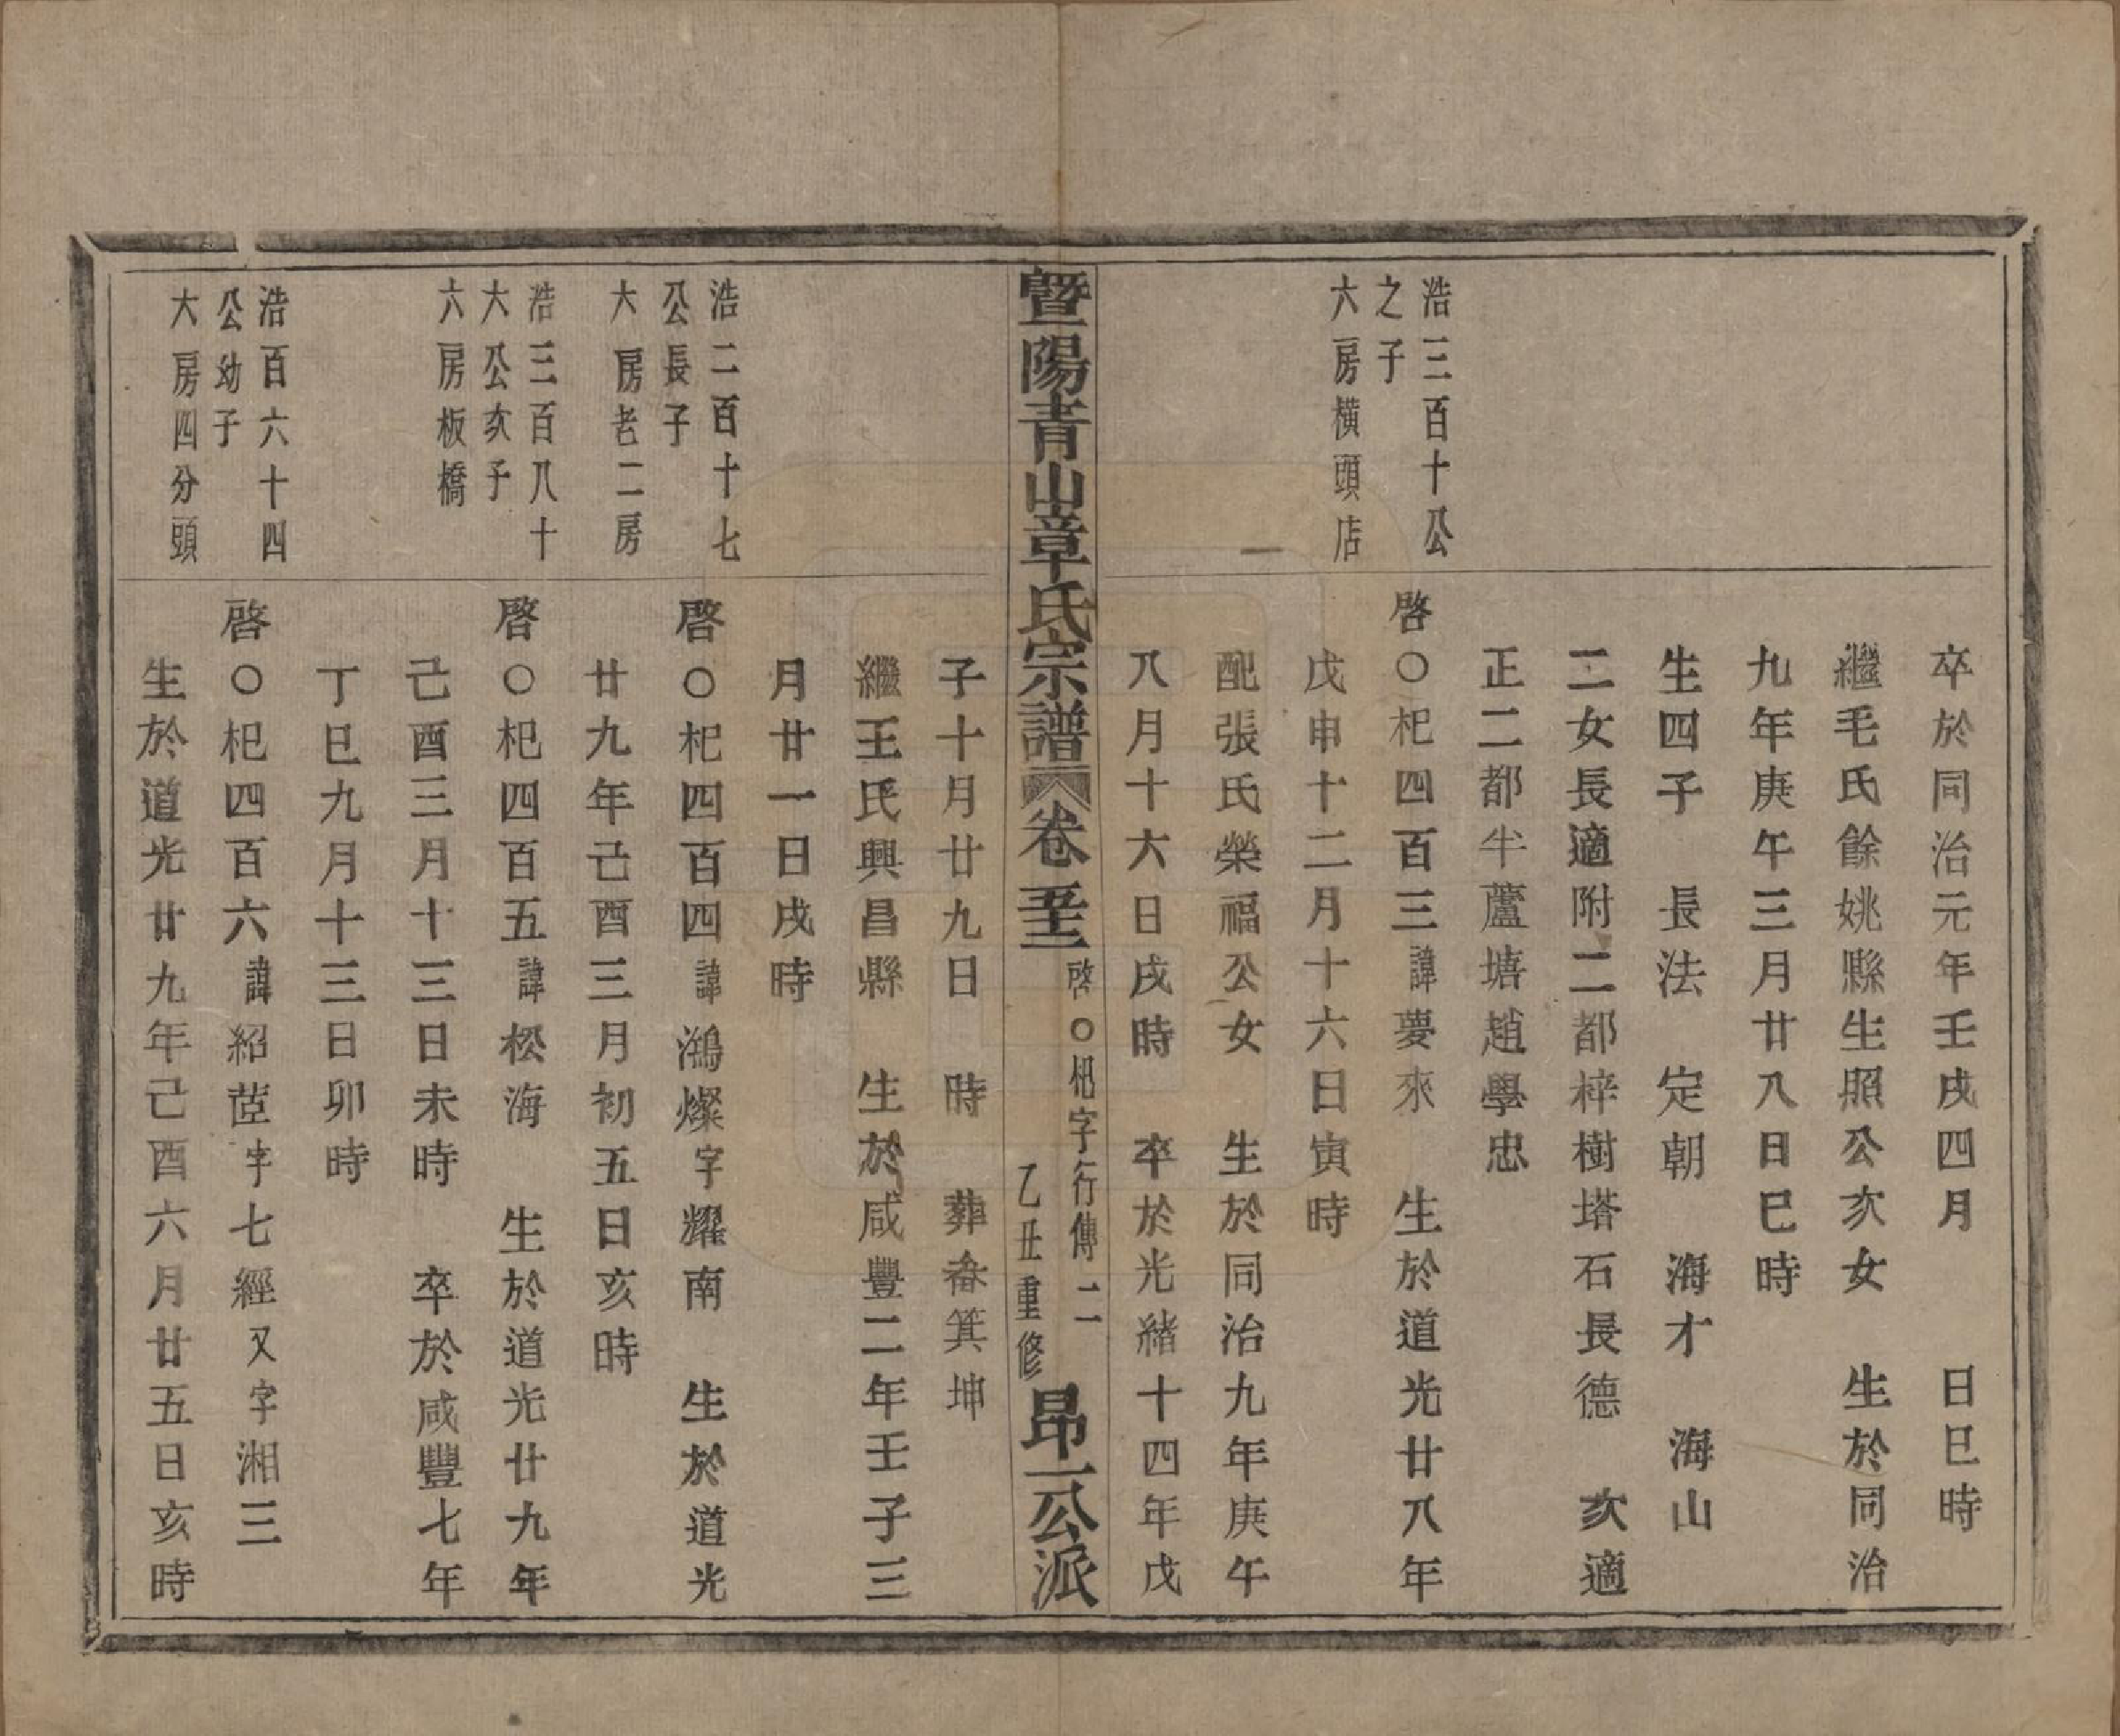 卒於同治元年壬戌四月　　日巳時
繼毛氏餘姚縣生照公次女　生於同治
九年庚午三月廿八日巳時
生四子　長法　定朝　海才　海山
二女長適附二都梓樹塔石長德　次適
正二都半蘆塘趙學忠
浩三百十公
之子
六房橫頭店
啓〇杞四百三諱夢來　生於道光廿八年
戊申十二月十六日寅時
配張氏榮福公女　生於同治九年庚午
八月十六日戌時　卒於光緒十四年戊
暨陽青山章氏宗譜　卷　啓〇杞字行傳　二　乙丑重修　昂一公派
子十月廿九日　時　葬夆箕坤
繼王氏興昌縣　生於咸豐二年壬子三
月廿一日戌時
浩二百十七
公長子
大房老二房
啓〇杞四百四諱鴻燦字耀南　生於道光
廿九年己酉三月初五日亥時
浩三百八十
六公次子
六房板橋
啓〇杞四百五諱松海　生於道光廿九年
己酉三月十三日未時　卒於咸豐七年
丁巳九月十三日卯時
浩百六十四
公幼子
大房四分頭
啓〇杞四百六諱紹荳字七經又字湘三
生於道光廿九年己酉六月廿五日亥時